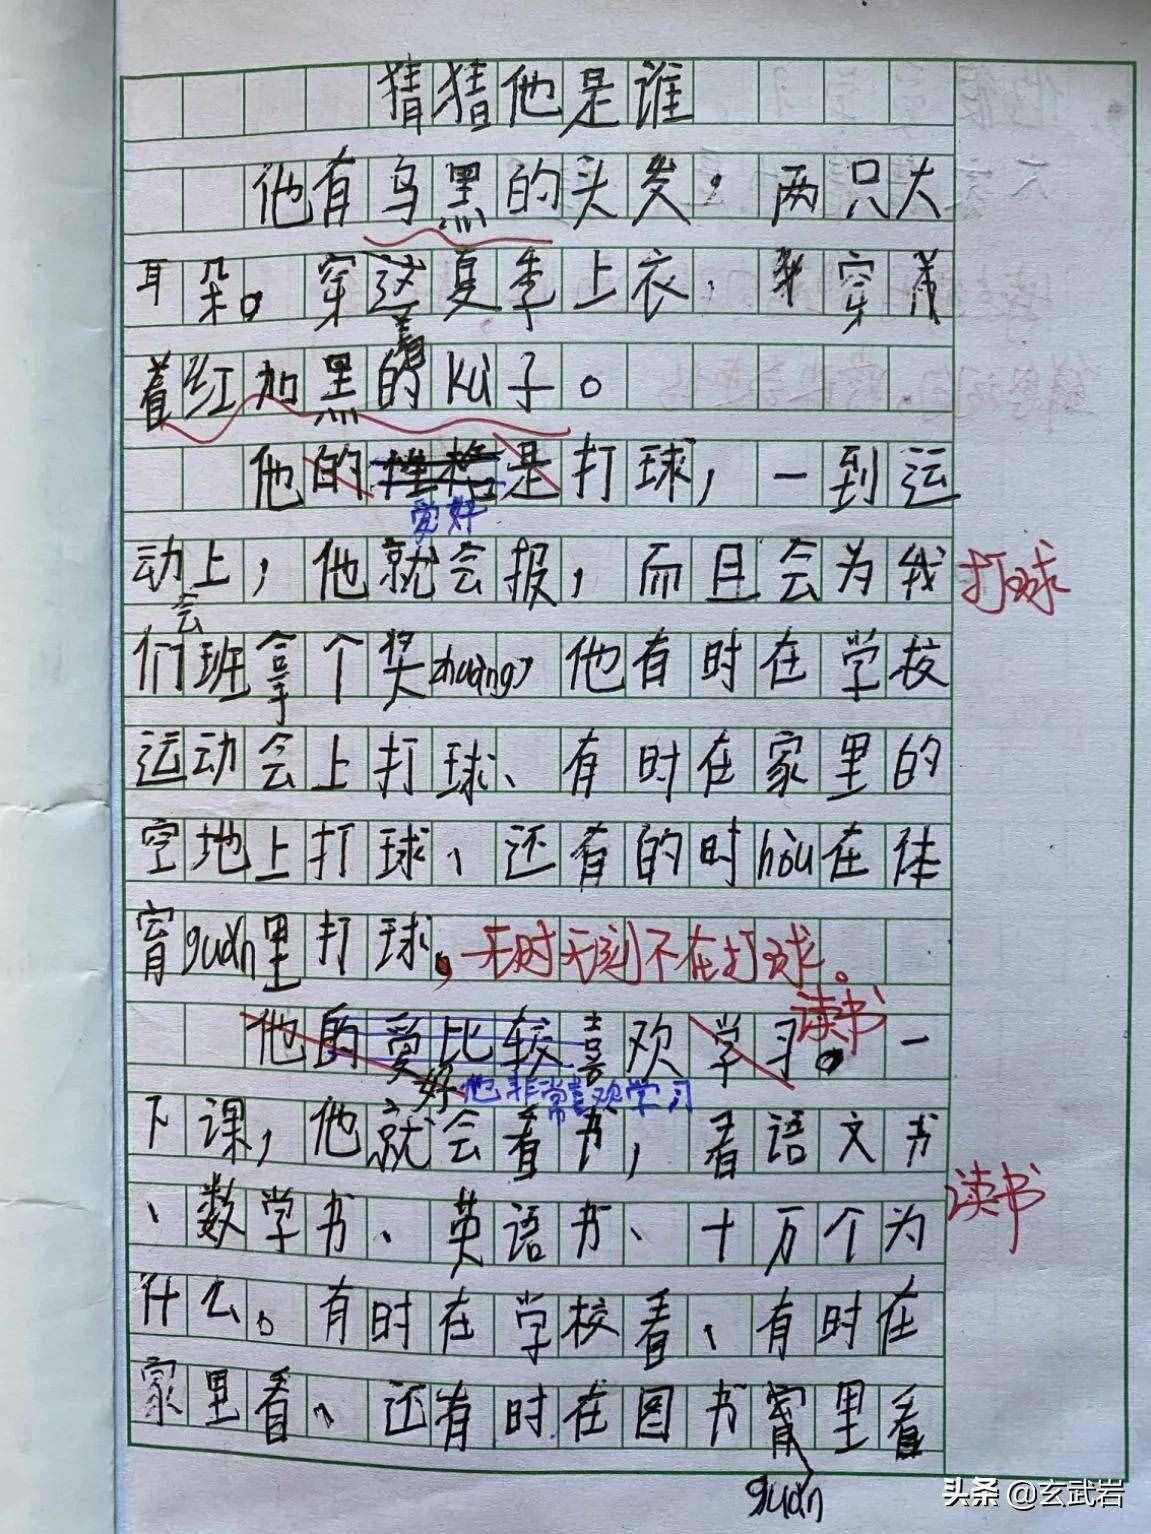 猜猜他是谁
他有乌黑的头发，两只大
耳朵。穿这夏季上衣、穿
着
着红加黑的kù子。
他的性格是打球，一到运
爱好
动上，他就会报，而且会为我
打球
会
们班拿个奖zhuàng，他有时在学校
运动会上打球、有时在家里的
空地上打球、还有的时hòu在体
育guǎn里打球，无时无刻不在打球。
读书
他的爱比较喜欢学习。一
好 他非常喜欢学习
下课，他就会看书，看语文书
、数学书、英语书、十万个为
读书
什么。有时在学校看、有时在
家里看、还有时在图书里看
guǎn
头条 @玄武岩